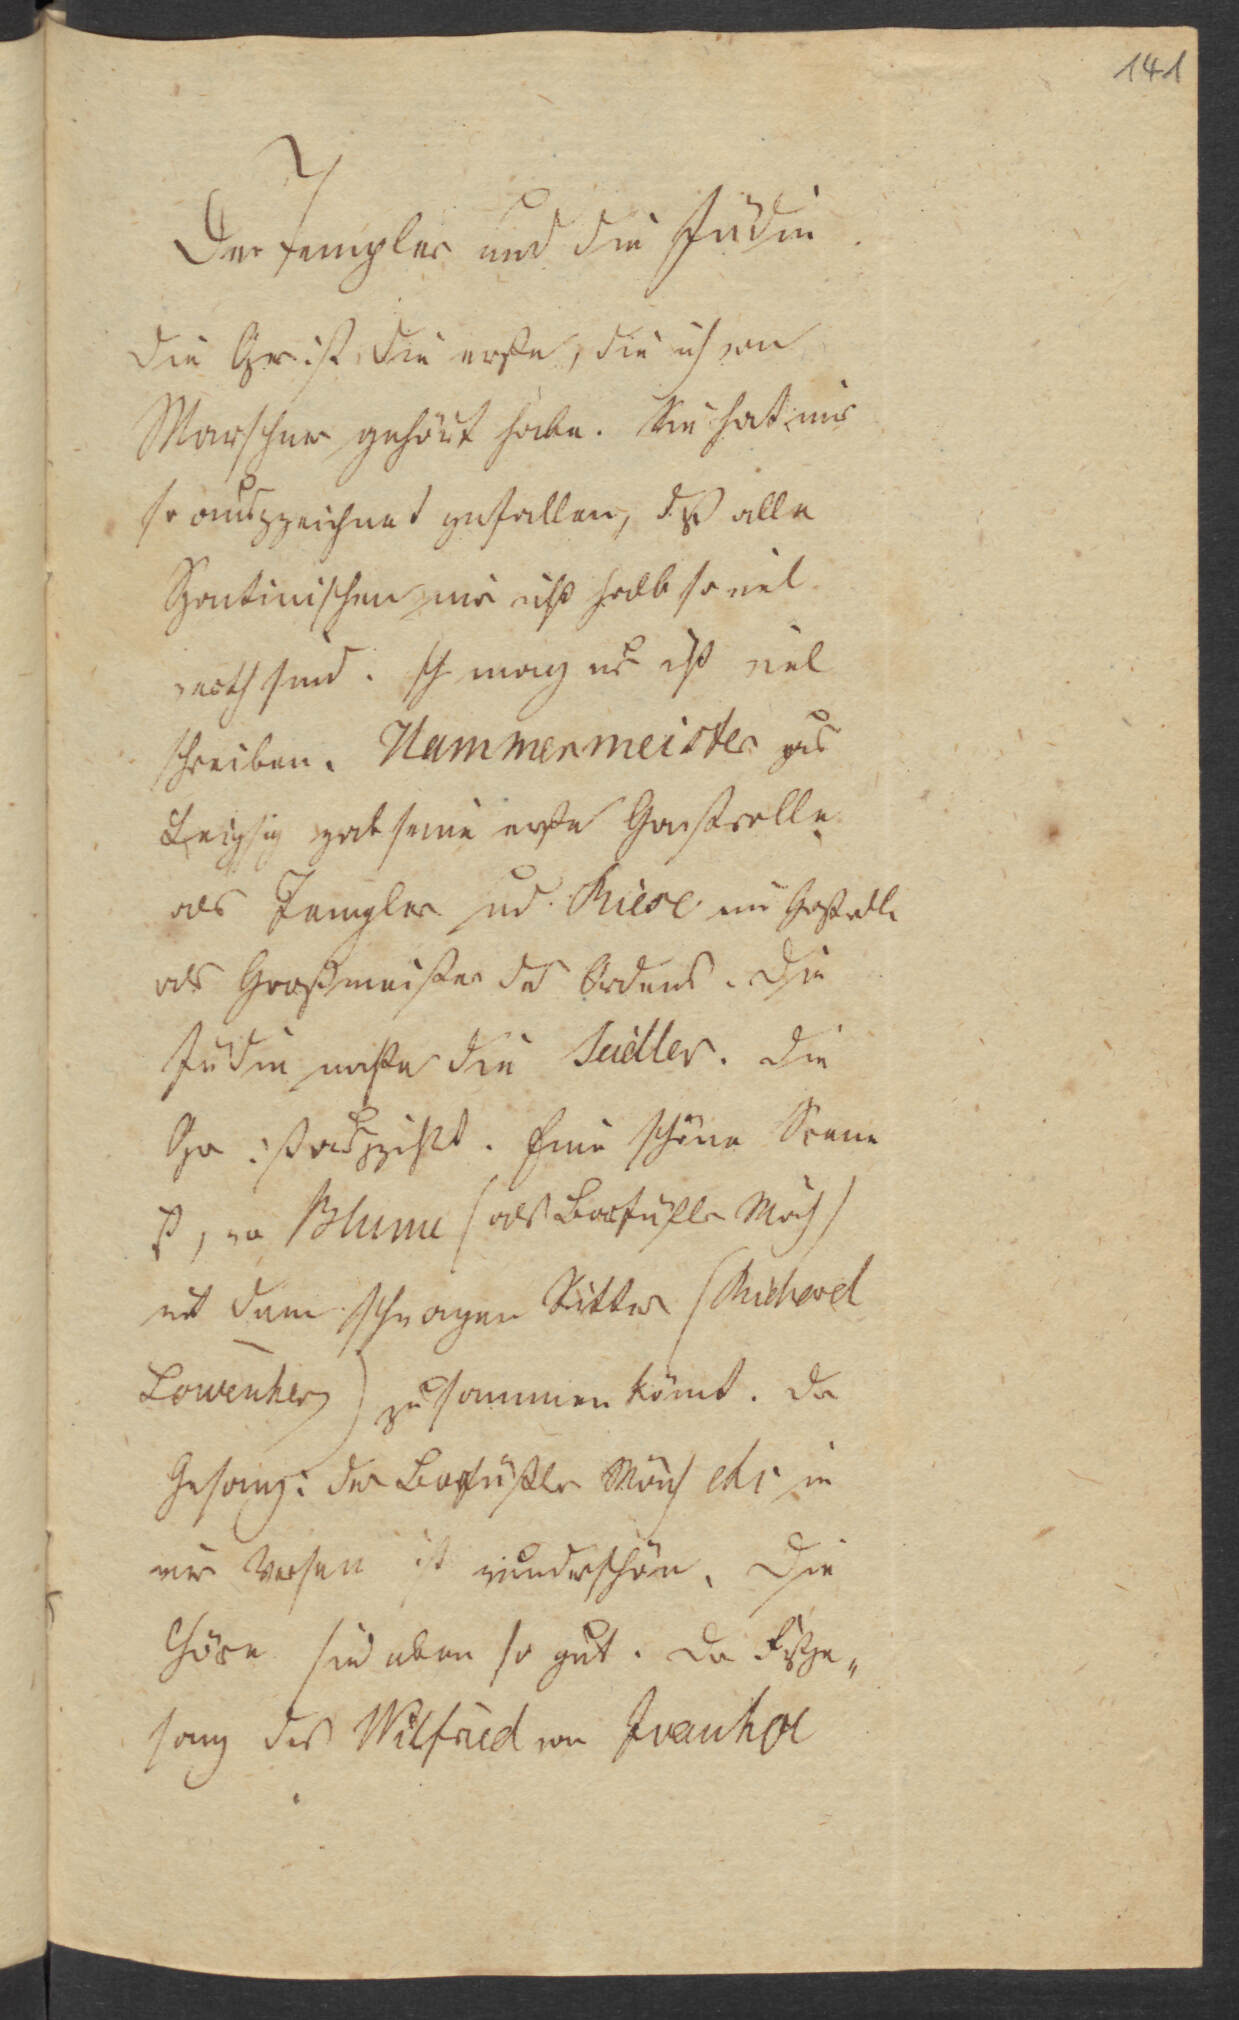 141
Der Templer und die Jüdin.
Die Oper ist die erste, die ich von
Marschner gehört habe. Sie hat mir
so ausgezeichnet gefallen, dß alle
Spontinischen mir nicht halb so viel
werth sind. Ich mag nur nicht viel
schreiben. Hammermeister aus
Leipzig gab seine erste Gastrolle
als Templer und Riese eine Gastrolle
als Großmeister des Ordens. Die
Jüdin machte die Seidler. Die
Oper ist ausgezischt. Eine schöne Scene
ist, wo Blume (als Barfüßler Mönch)
mit dem schwarzen Ritter (Richard
Löwenherz) zusammen kömt. Der
Gesang: der Barfüßler Mönch etc in
vier Versen ist wunderschön. Die
Chöre sind eben so gut. Der
sang des Wilfried von Ivanhoe